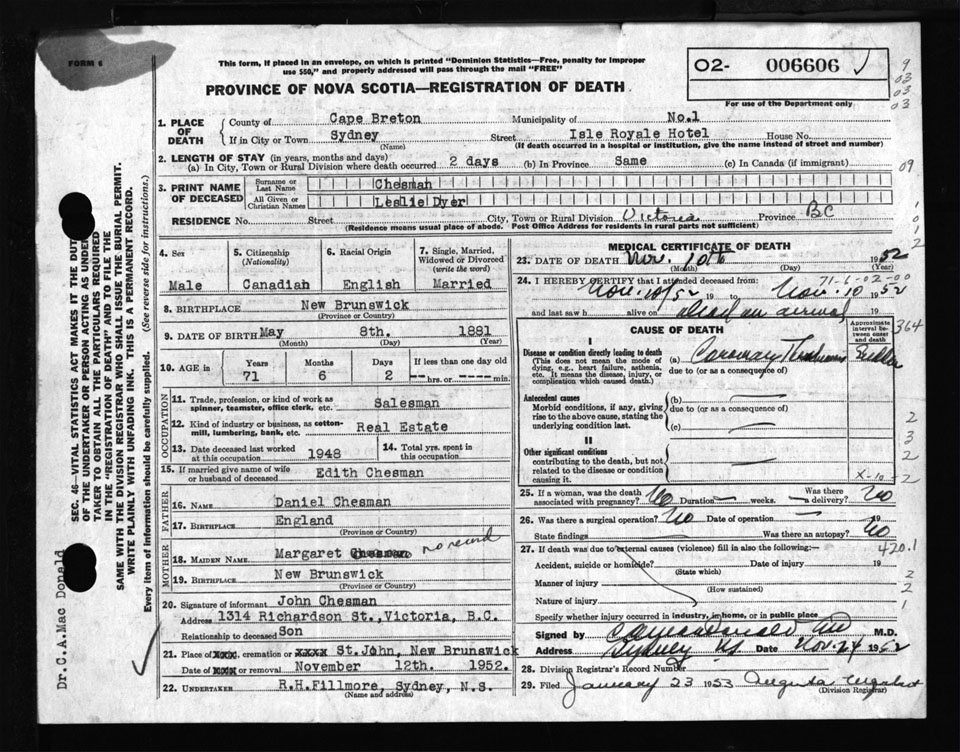 FORM 6
This form, if placed in an envelope, on which is printed "Dominion Statistics—Free, penalty for improper
use $50," and properly addressed will pass through the mail "FREE"
PROVINCE OF NOVA SCOTIA—REGISTRATION OF DEATH
02- 006606
For use of the Department only
9
03
03
03
09
1. PLACE OF DEATH
County of Cape Breton Municipality of No.1
If in City or Town Sydney Street Isle Royale Hotel House No.
(Name) (If death occurred in a hospital or institution, give the name instead of street and number)
2. LENGTH OF STAY (in years, months and days)
(a) In City, Town or Rural Division where death occurred 2 days (b) In Province Same (c) In Canada (if immigrant)
3. PRINT NAME OF DECEASED
Surname or Last Name Chesman
All Given or Christian Names Leslie Dyer
RESIDENCE No. Street City, Town or Rural Division Victoria Province BC
(Residence means usual place of abode. Post Office Address for residents in rural parts not sufficient)
1
0
1
2
4. Sex
Male
5. Citizenship (Nationality)
Canadian
6. Racial Origin
English
7. Single, Married, Widowed or Divorced (write the word)
Married
8. BIRTHPLACE New Brunswick
(Province or Country)
9. DATE OF BIRTH May 8th. 1881
(Month) (Day) (Year)
10. AGE in
Years 71
Months 6
Days 2
If less than one day old
-- hrs. or -- min.
OCCUPATION
11. Trade, profession, or kind of work as spinner, teamster, office clerk, etc. Salesman
12. Kind of industry or business, as cotton-mill, lumbering, bank, etc. Real Estate
13. Date deceased last worked at this occupation 1948
14. Total yrs. spent in this occupation
15. If married give name of wife or husband of deceased Edith Chesman
FATHER
16. NAME Daniel Chesman
17. BIRTHPLACE England
(Province or Country)
MOTHER
18. MAIDEN NAME Margaret Chesman no record
19. BIRTHPLACE New Brunswick
(Province or Country)
20. Signature of informant John Chesman
Address 1314 Richardson St., Victoria, B.C.
Relationship to deceased Son
21. Place of xxxx, cremation or xxxx St. John, New Brunswick
Date of xxxx or removal November 12th. 1952.
22. UNDERTAKER R.H.Fillmore, Sydney, N.S.
(Name and address)
MEDICAL CERTIFICATE OF DEATH
23. DATE OF DEATH Nov. 10th 1952
(Month) (Day) (Year)
24. I HEREBY CERTIFY that I attended deceased from: 71-6-02-00
Nov. 10/52 19 to Nov. 10 1952
and last saw h alive on dead on arrival 19
364
CAUSE OF DEATH
Approximate interval between onset and death
I
Disease or condition directly leading to death
(This does not mean the mode of dying, e.g., heart failure, asthenia, etc. It means the disease, injury, or complication which caused death.)
(a) Coronary Thrombosis
due to (or as a consequence of)
Antecedent causes
Morbid conditions, if any, giving rise to the above cause, stating the underlying condition last.
(b)
due to (or as a consequence of)
(c)
II
Other significant conditions
contributing to the death, but not related to the disease or condition causing it.
2
3
2
25. If a woman, was the death associated with pregnancy? No Duration — weeks. Was there — delivery? No
26. Was there a surgical operation? No Date of operation — 19
State findings Was there an autopsy? No
27. If death was due to external causes (violence) fill in also the following:— 420.1
Accident, suicide or homicide? Date of injury 19
(State which)
Manner of injury
(How sustained)
Nature of injury
2
2
1
Specify whether injury occurred in industry, in home, or in public place
Signed by C A MacDonald MD M.D.
Address Sydney NS Date Nov. 24 1952
28. Division Registrar's Record Number
29. Filed January 23 1953 Augusta
(Division Registrar)
SEC. 46—VITAL STATISTICS ACT MAKES IT THE DUTY
OF THE UNDERTAKER OR PERSON ACTING AS UNDER-
TAKER TO OBTAIN ALL THE PARTICULARS REQUIRED
IN THE "REGISTRATION OF DEATH" AND TO FILE THE
SAME WITH THE DIVISION REGISTRAR WHO SHALL ISSUE THE BURIAL PERMIT.
WRITE PLAINLY WITH UNFADING INK. THIS IS A PERMANENT RECORD.
Every item of information should be carefully supplied. (See reverse side for instructions.)
Dr.C.A.Mac Donald